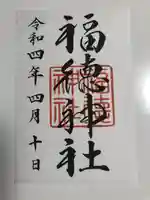 福徳神社
令和四年四月十日